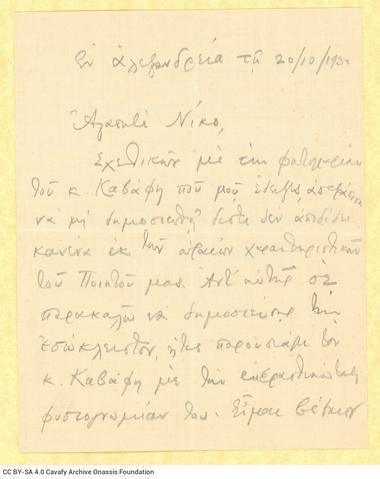 Ἐν Ἀλεξανδρείᾳ τῇ 20/10/930
Ἀγαπητὲ Νίκο,
Σχετικῶς μὲ τὴν φωτογραφίαν
τοῦ κ. Καβάφη ποῦ μοῦ ἔδειξες,
νὰ μὴ δημοσιευθῇ διότι δὲν ἀποδίδει
κανένα ἐκ τῶν ὡραίων χαρακτηριστικῶν
τοῦ Ποιητοῦ μας. Ἀντ' αὐτῆς σὲ
παρακαλῶ νὰ δημοσιεύσῃς τὴν
ἐσώκλειστον, ἥτις παρουσιάζει τὸν
κ. Καβάφη μὲ τὴν ἐκφραστικωτάτην
φυσιογνωμίαν του. Εἶμαι βέβαιος
CC BY-SA 4.0 Cavafy Archive Onassis Foundation